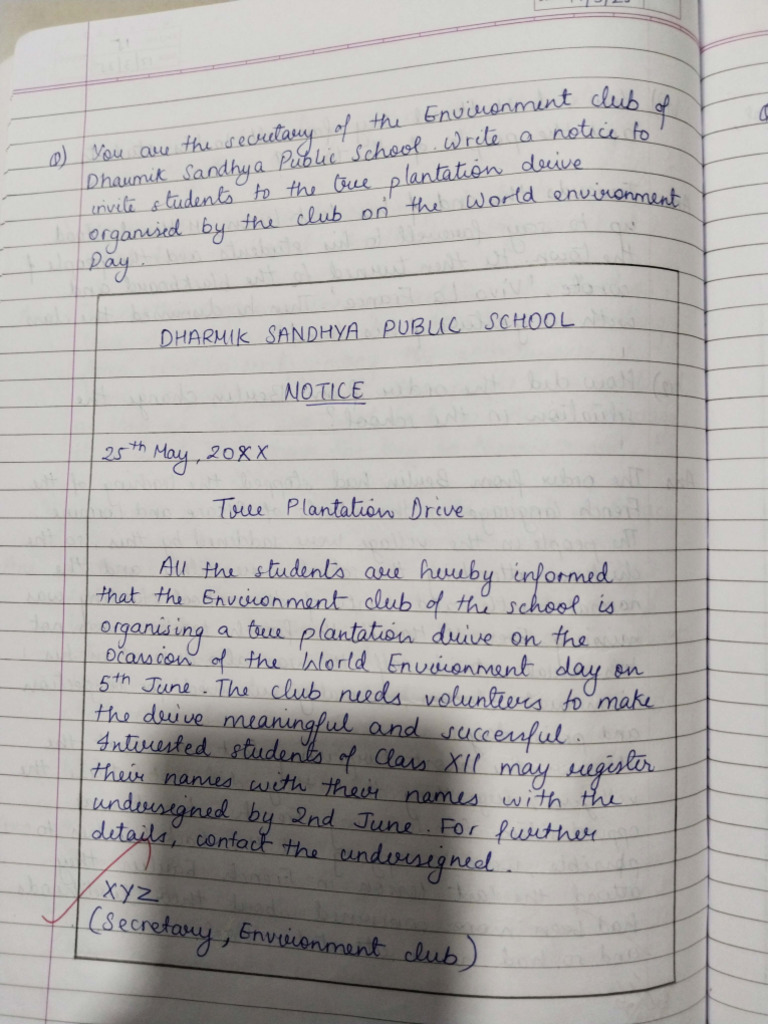 Q) You are the secretary of the Environment club of
Dharmik Sandhya Public School. Write a notice to
invite students to the tree plantation drive
organised by the club on the World environment
Day.
DHARMIK SANDHYA PUBLIC SCHOOL
NOTICE
25th May, 20XX
Tree Plantation Drive
All the students are hereby informed
that the Environment club of the school is
organising a tree plantation drive on the
ocassion of the World Environment day on
5th June. The club needs volunteers to make
the drive meaningful and successful.
Interested students of Class XII may register
their names with their names with the
undersigned by 2nd June. For further
details, contact the undersigned.
XYZ
(Secretary, Environment club)